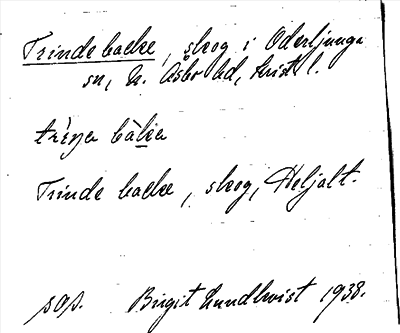 Trinde backe, skog i Oderljunga
sn, N. Åsbo hd, Krist l.
Trinde backe, skog, Heljalt.
sas. Birgit Lundkvist 1938.